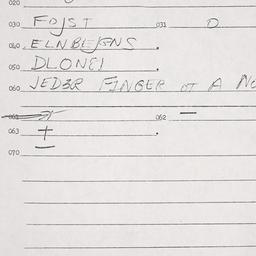 020
030 FDJST 031 D
040 ELNBEJGNS.
050 DLONEI
060 JED3R FINGER OT A NO
061 062 —
063 +
—
070